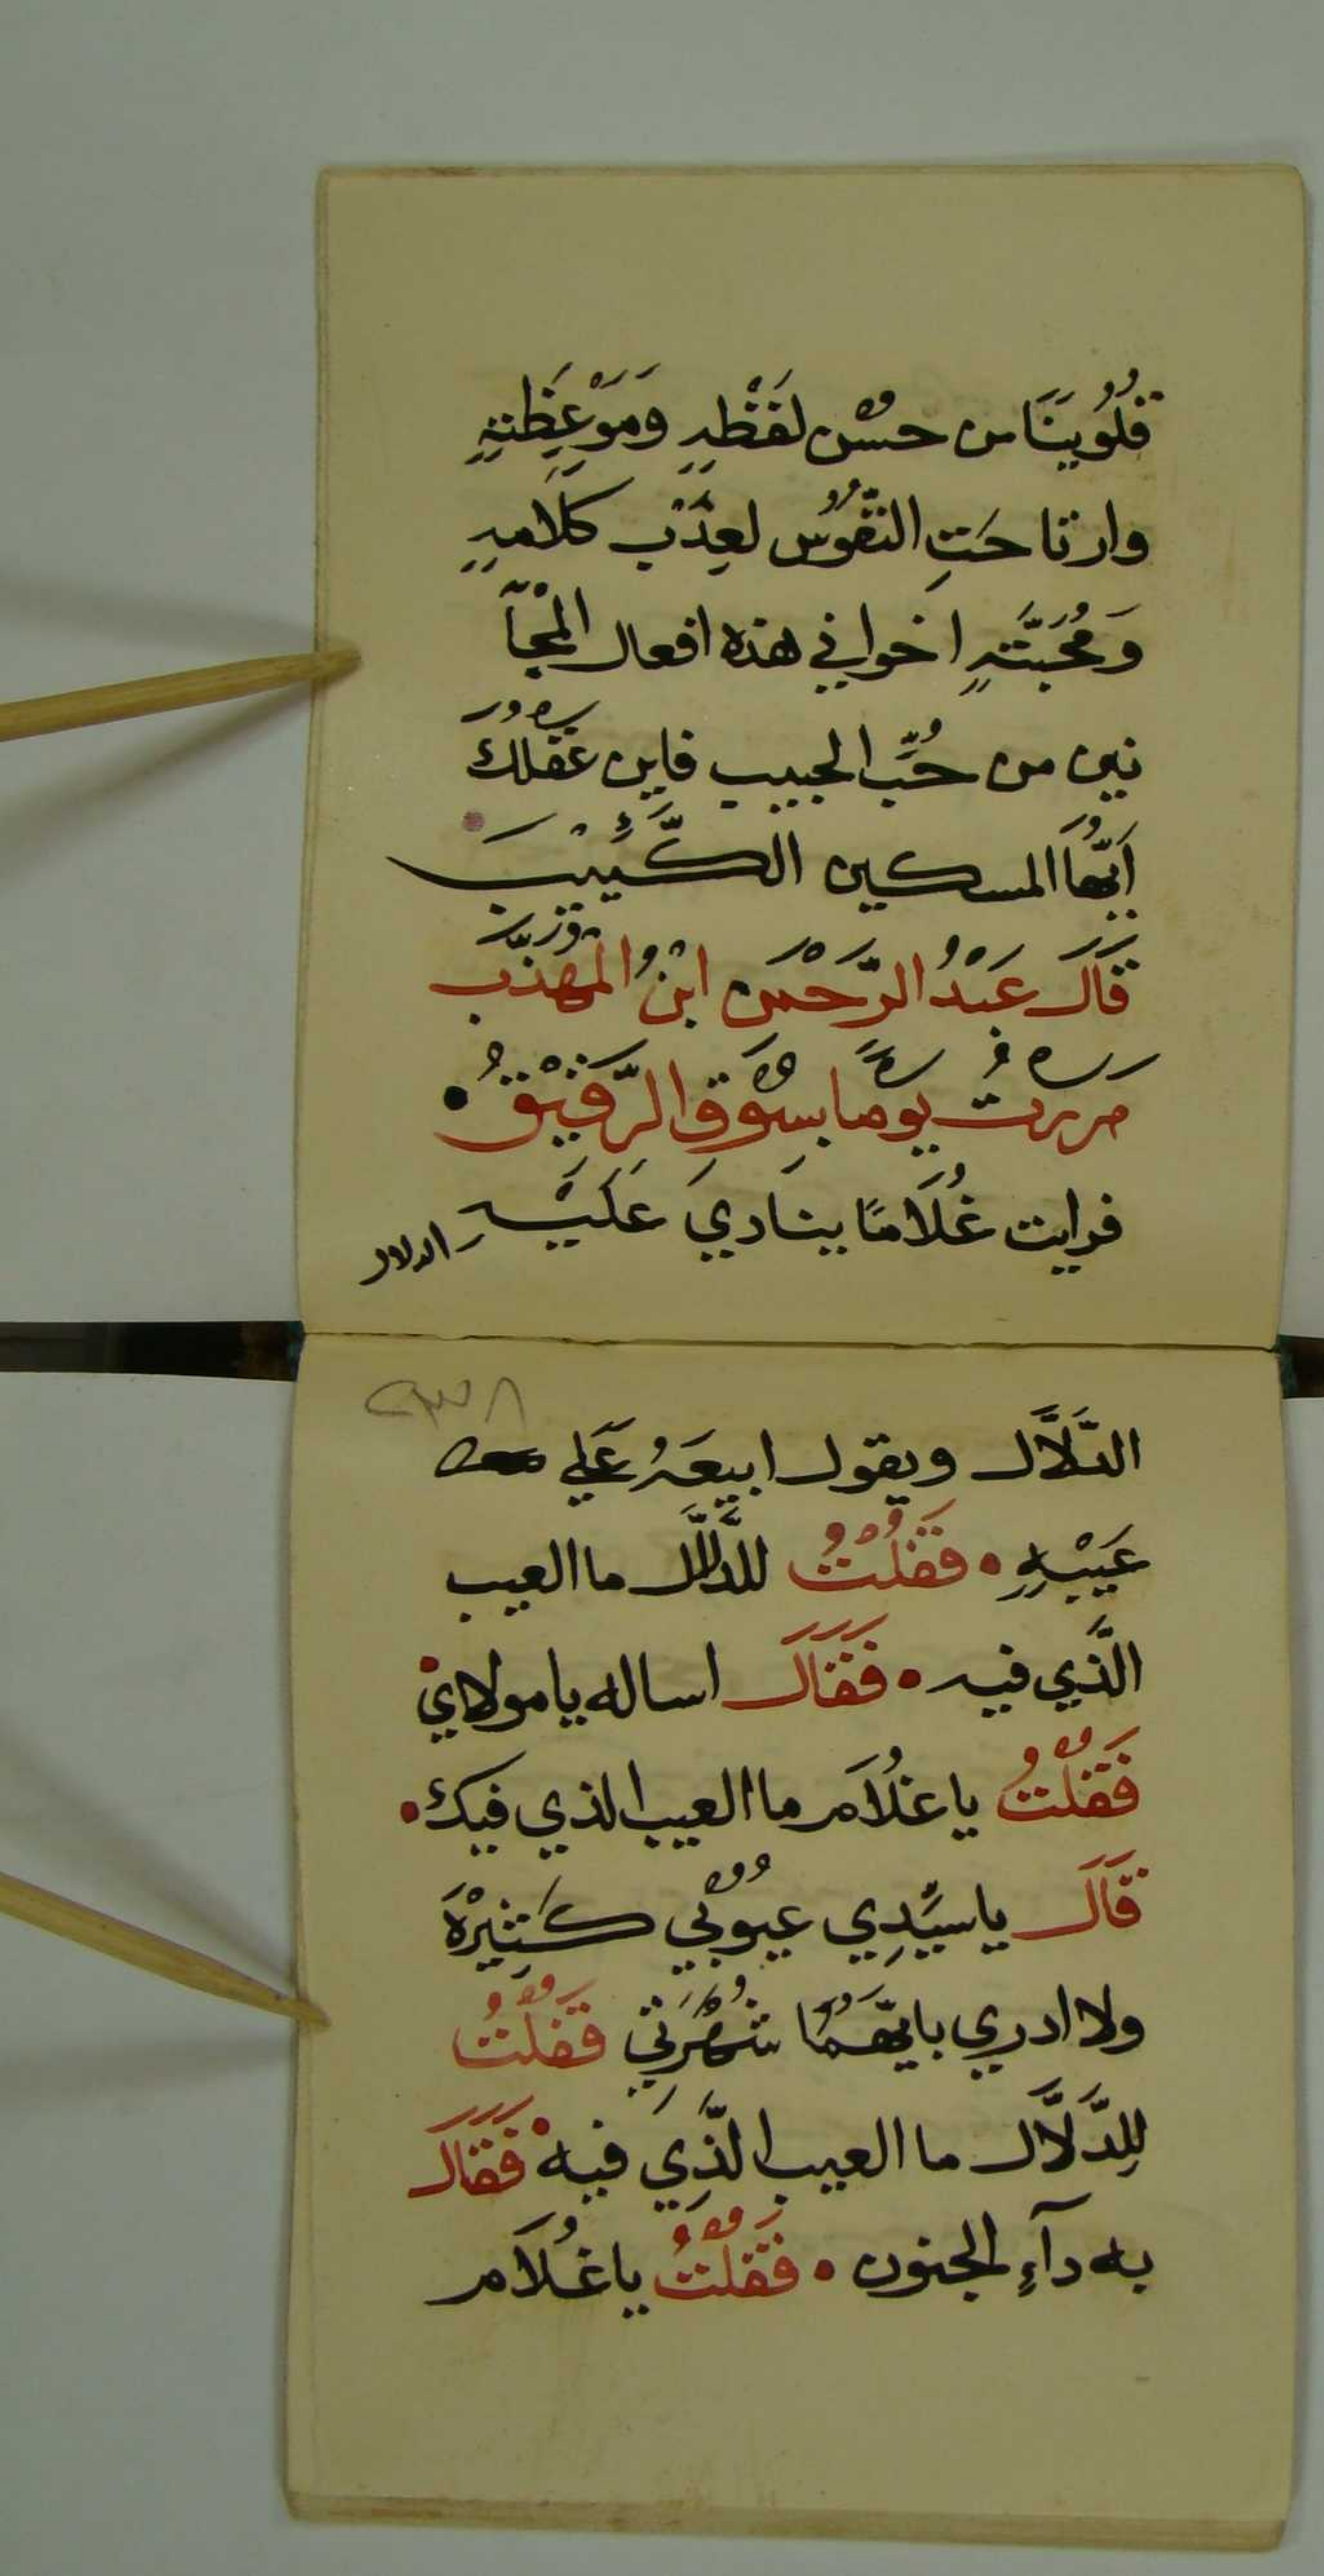 قُلُوبُنَا من حُسْن لَفْظِهِ وَمَوْعِظَتِهِ
وارتاحَتِ النُّفُوْس لعِذْب كَلَامِهِ
وَمُحَبَّتِهِ اخواني هذه افعال المْجَآ
نين من حُبِّ الحبيب فاين عَقْلُكَ
اَيُّهَا المسكين الكَئِيْبَ
قَالَ عَبْدُ الرَّحْمَن ابْنُ الْمُهَذَّب
مررتُ يومًا بسُوْقِ الرَّقِيْقُ
فرايت غُلَامًا ينَادِيَ عَلَيْهِ
الدلال
٢٣٨
الدَّلَّال ويقول ابيعَهُ عَلي
عَيْبِهِ • فَقُلْتُ للدَّلَّال ما العيب
الَّذي فيه • فَقَالَ اساله يا مولاي •
فَقُلْتُ يا غُلَام ما العيب الذي فيك •
قَالَ يا سيِّدِي عيُوْبي كَثِيْرَة
ولا ادري بايّهُمَا شُهْرَتي فَقُلْتُ
لِلدَّلَّال ما العيب الَّذِي فيه • فَقَالَ
به دآءِ الجنون • فَقُلْتُ يا غُلَام